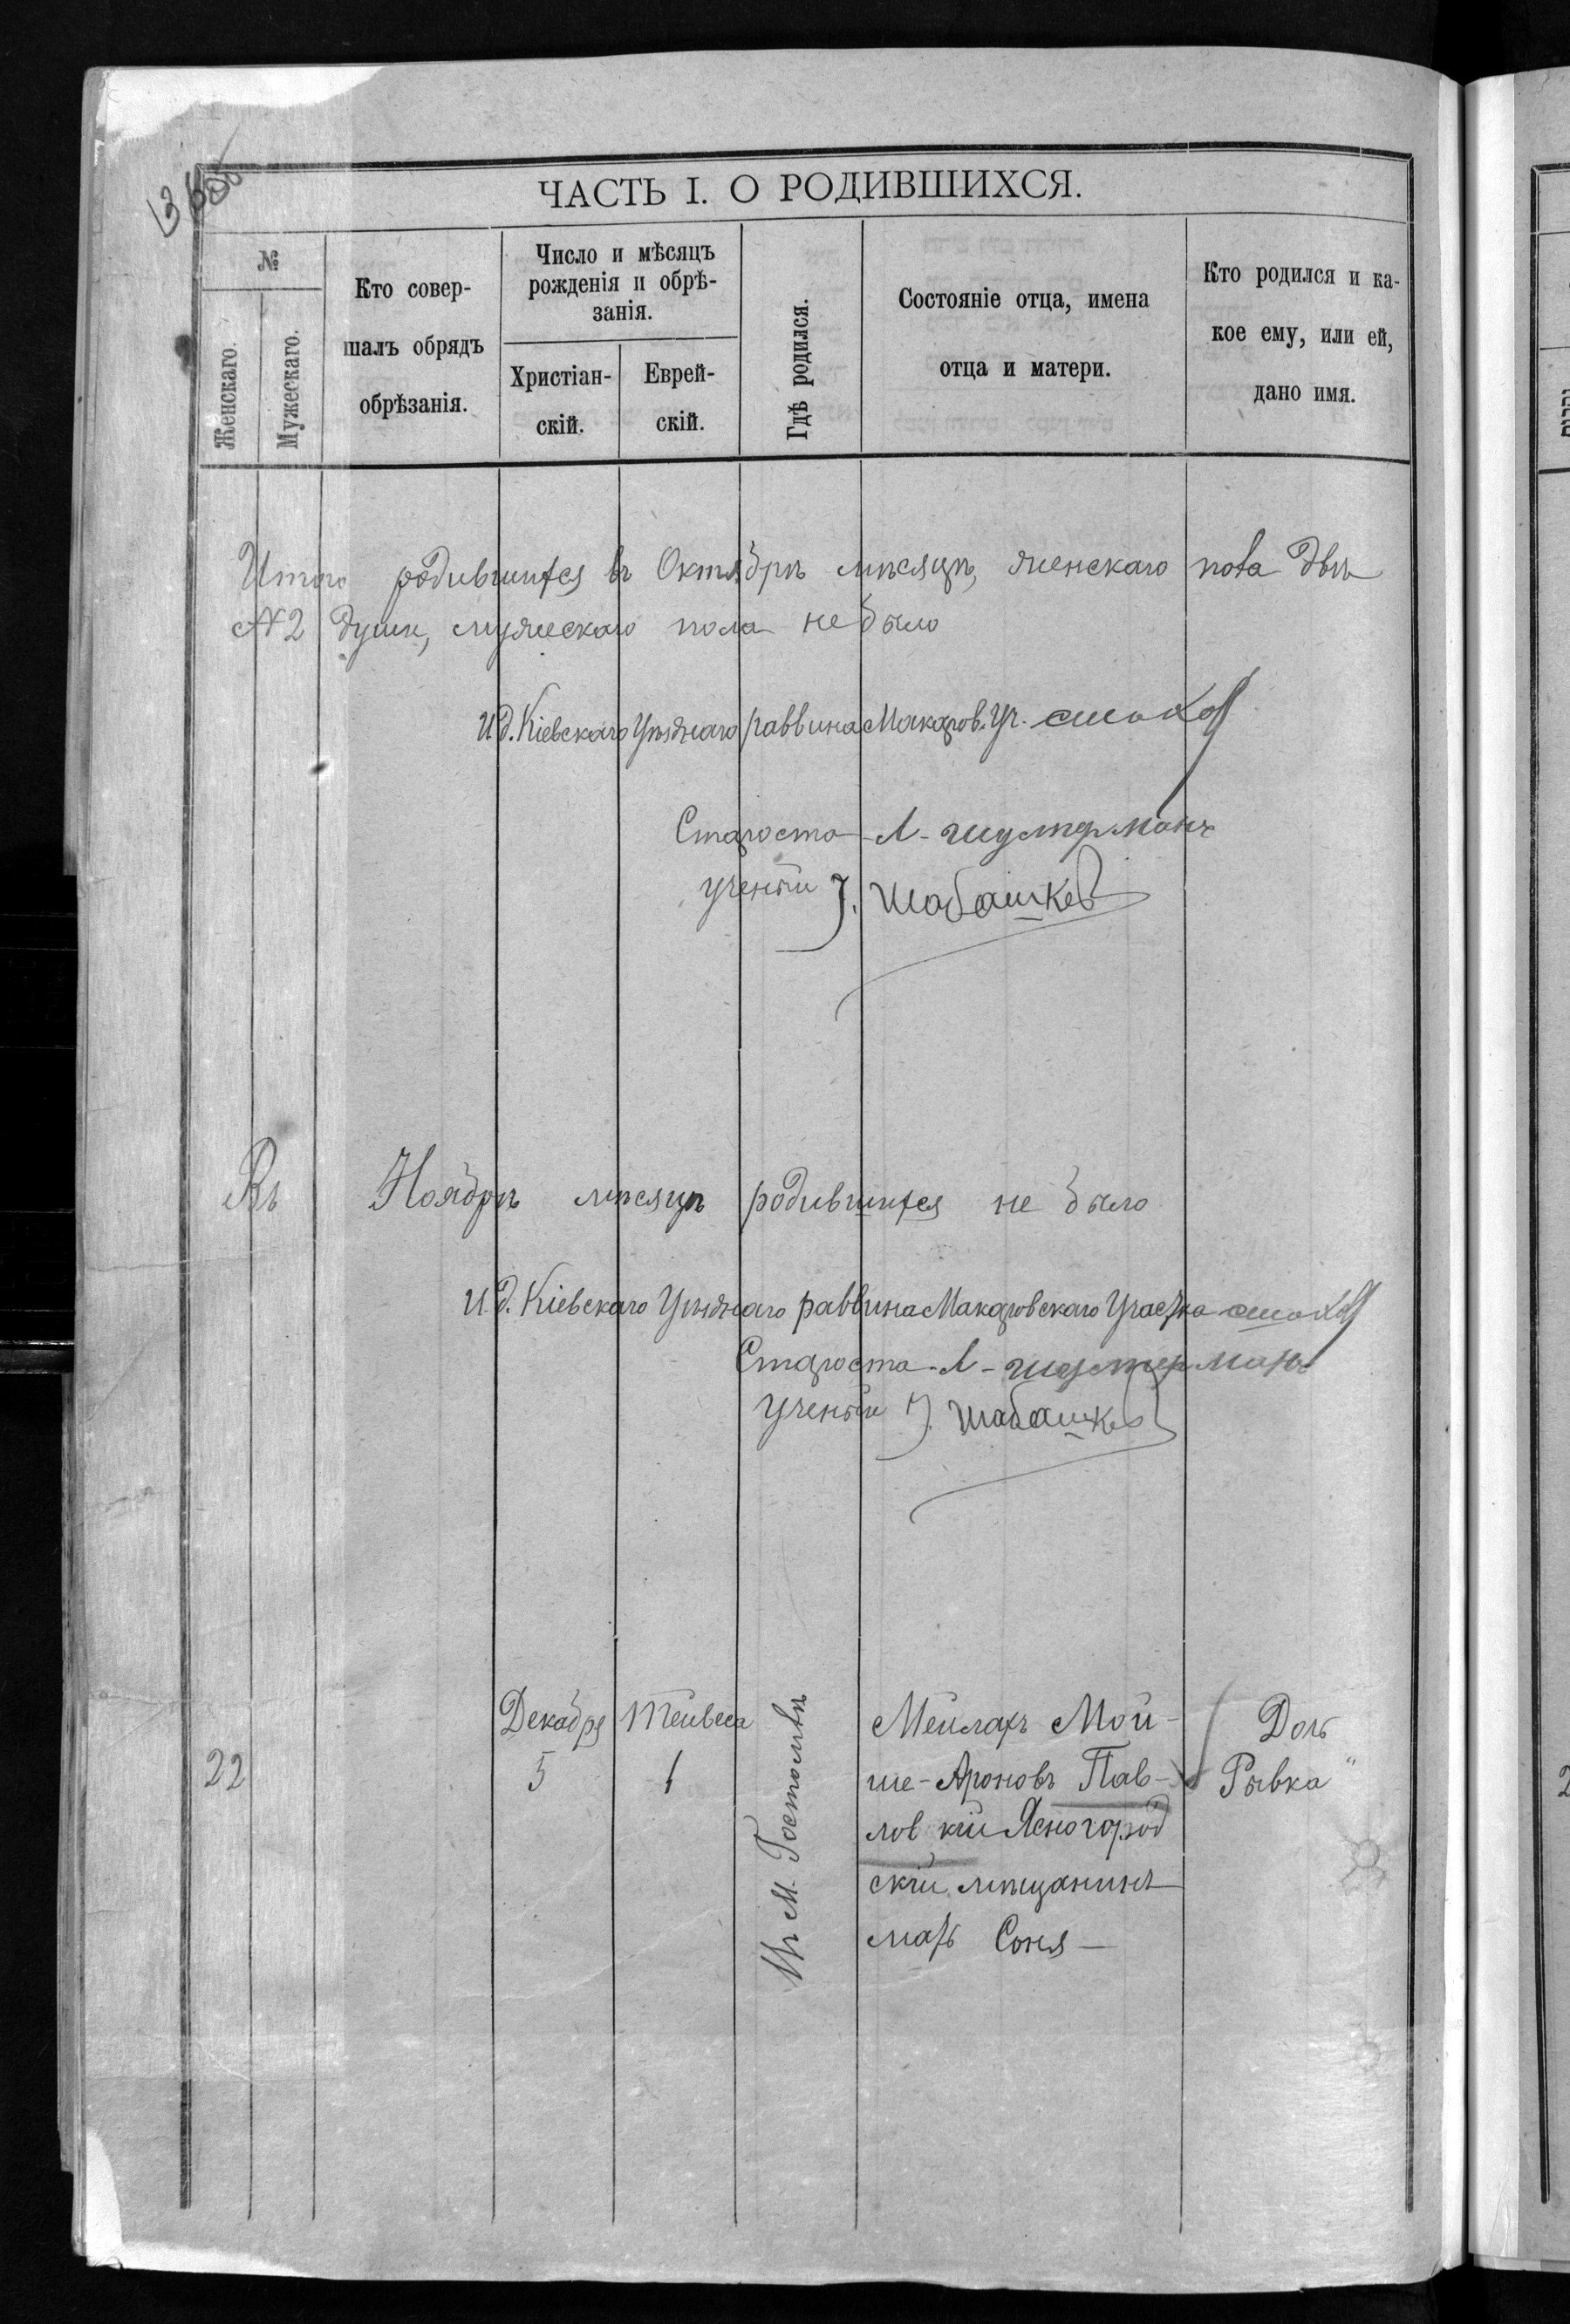 ЧАСТЬ I. О РОДИВШИХСЯ.
№
Женскаго.
Мужескаго.
Кто совер-
шалъ обрядъ
обрѣзанія.
Число и мѣсяцъ
рожденія и обрѣ-
занія.
Христіан-
скій.
Еврей-
скій.
Гдѣ родился.
Состояніе отца, имена
отца и матери.
Кто родился и ка-
кое ему, или ей,
дано имя.
Итого родившихся въ Октябрѣ мѣсяцѣ, женскаго пола двѣ
№ 2 души, мужескаго пола не было
И.д. Кіевскаго Уѣзднаго раввина Макаров. Уч.
Староста Л- Шустерманъ
ученый
Въ Ноябрѣ мѣсяцѣ родившихся не было
И.д. Кіевскаго Уѣзднаго раввина Макаровскаго Участка
Староста Л- Шустерманъ
Ученый
22
Декабря
5
Тейвеса
1
Въ М. Гостомлѣ
Мейлахъ Мой-
ше-Ароновъ Пав-
лов кій Ясногород
скій мѣщанинъ
мать Соня —
Дочь
Рывка"